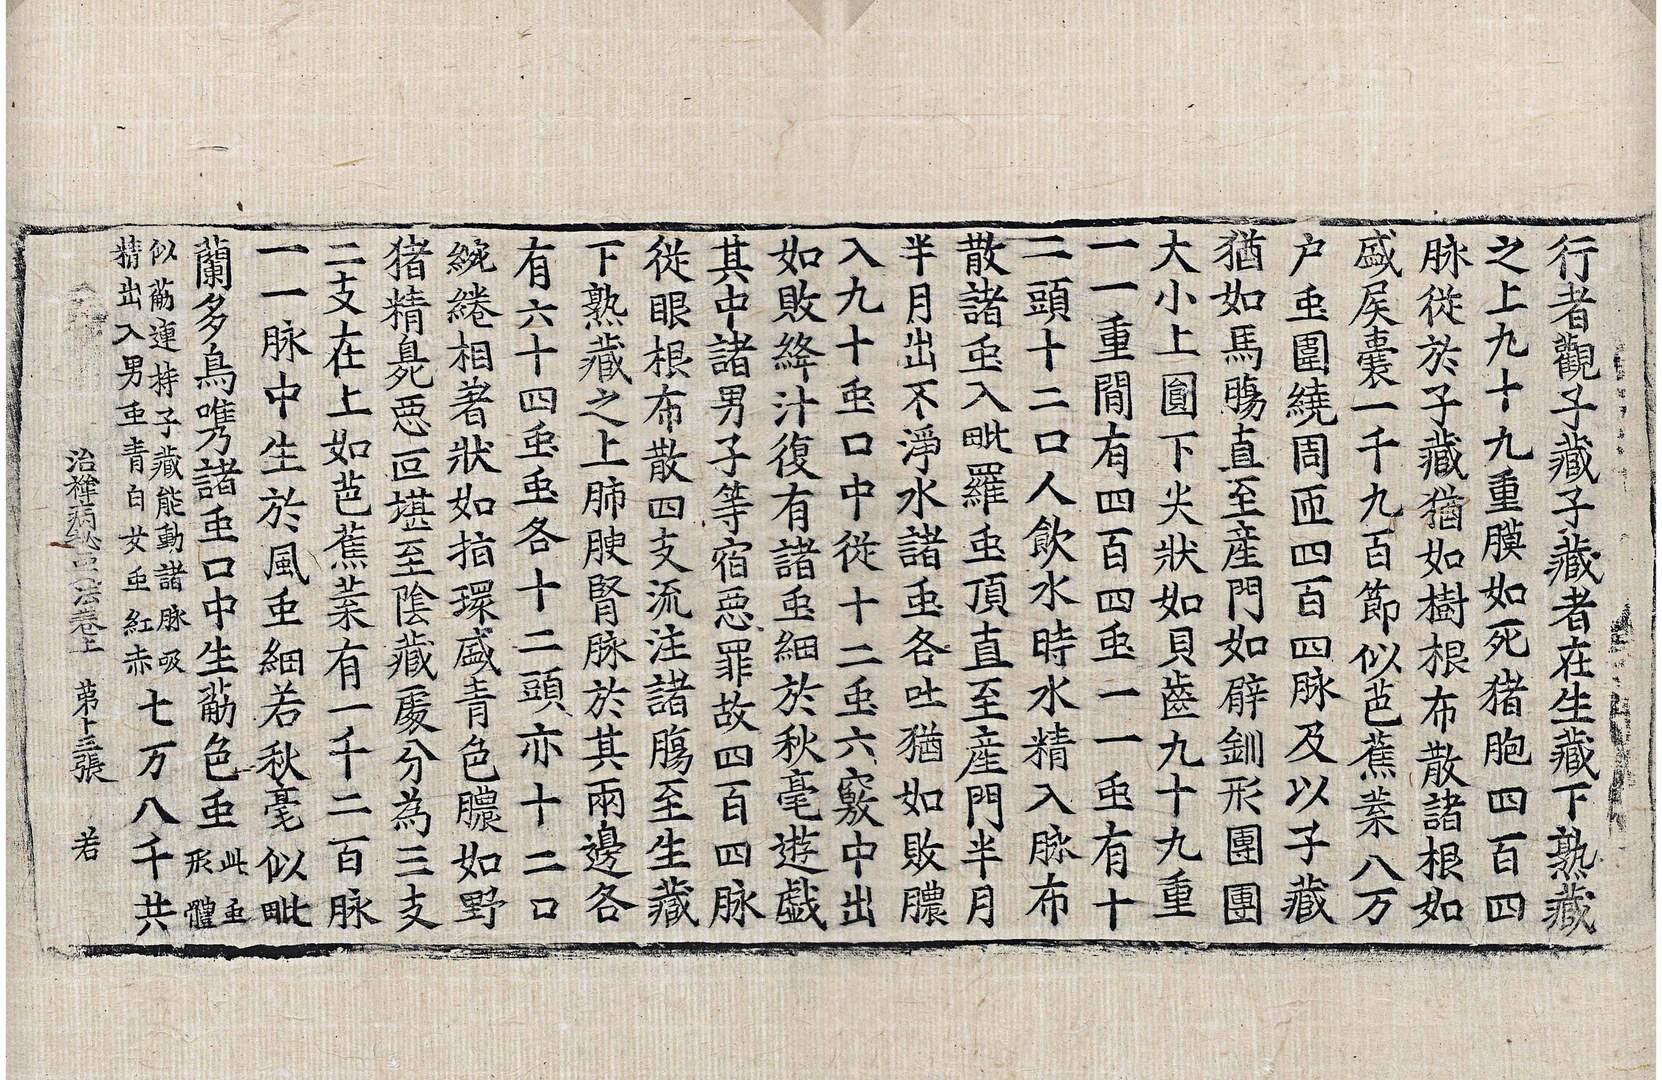 行者觀子藏子藏者在生藏下熟藏
之上九十九重膜如死猪胞四百四
脉從於子藏猶如樹根布散諸根如
盛屎囊一千九百節似芭蕉葉八万
户䖝圍繞周匝四百四脉及以子藏
猶如馬膓直至産門如臂釧形團團
大小上圓下尖狀如貝齒九十九重
一一重間有四百四䖝一一䖝有十
二頭十二口人飲水時水精入脉布
散諸䖝入毗羅䖝頂直至産門半月
半月出不淨水諸䖝各吐猶如敗膿
入九十䖝口中從十二䖝六竅中出
如敗絳汁復有諸䖝細於秋毫遊戲
其中諸男子等宿惡罪故四百四脉
從眼根布散四支流注諸膓至生藏
下熟藏之上肺腴腎脉於其兩邊各
有六十四䖝䖝各十二頭亦十二口
綩綣相著狀如指環盛青色膿如野
猪精臰惡叵堪至陰藏處分為三支
二支在上如芭蕉葉有一千二百脉
一一脉中生於風䖝細若秋毫似毗
蘭多鳥嘴諸䖝口中生葂色䖝此䖝形體
似葂連持子藏能動諸脉吸精出入男䖝青白女䖝紅赤七万八千共
治禪病祕要法卷上 第十三張 若